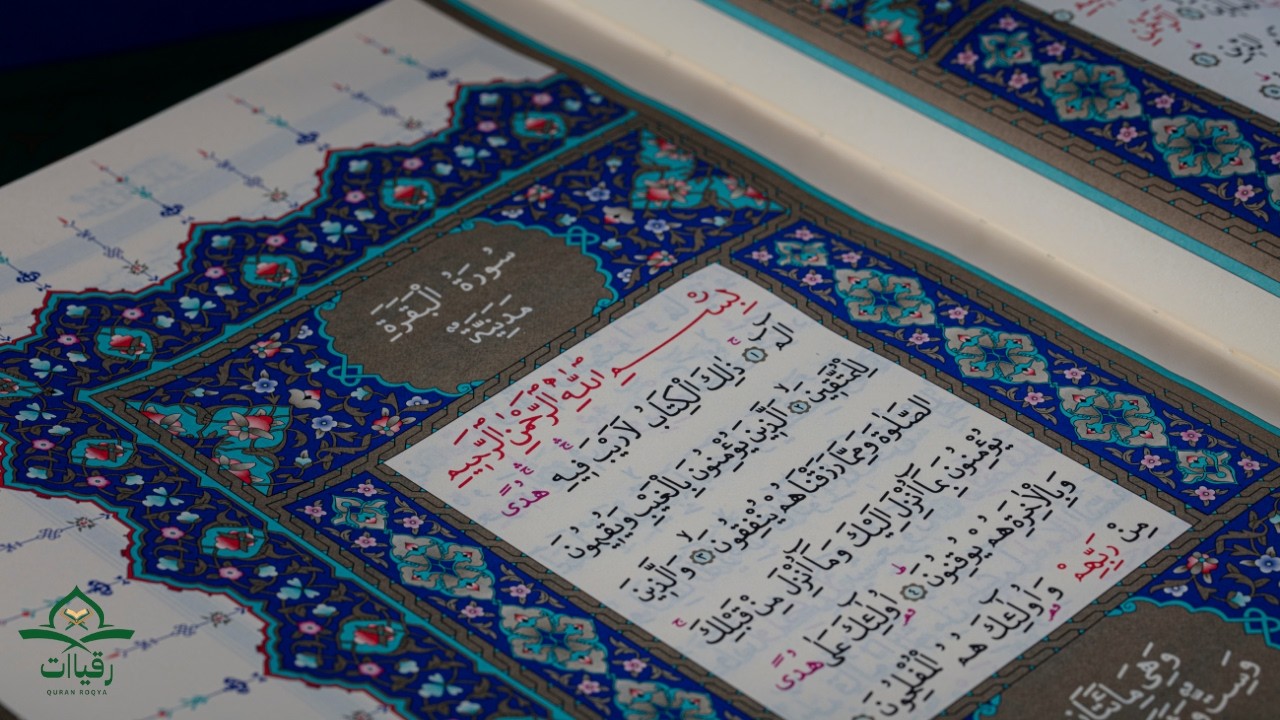 سُورَةُ الْبَقَرَةِ
مَدَنِيَّةٌ
بِسْمِ اللّٰهِ الرَّحْمٰنِ الرَّحِيمِ
الٓمٓ ﴿١﴾ ذٰلِكَ الْكِتَابُ لَا رَيْبَ فِيهِ هُدًى
لِلْمُتَّقِينَ ﴿٢﴾ اَلَّذِينَ يُؤْمِنُونَ بِالْغَيْبِ وَيُقِيمُونَ
الصَّلٰوةَ وَمِمَّا رَزَقْنَاهُمْ يُنْفِقُونَ ﴿٣﴾ وَالَّذِينَ
يُؤْمِنُونَ بِمَٓا اُنْزِلَ اِلَيْكَ وَمَٓا اُنْزِلَ مِنْ قَبْلِكَ
وَبِالْاٰخِرَةِ هُمْ يُوقِنُونَ ﴿٤﴾ اُو۬لٰٓئِكَ عَلٰى هُدًى
مِنْ رَبِّهِمْ وَاُو۬لٰٓئِكَ هُمُ الْمُفْلِحُونَ
وَهِىَ مِائَتَانِ
وَسِتٌّ
رقيات
QURAN ROQYA